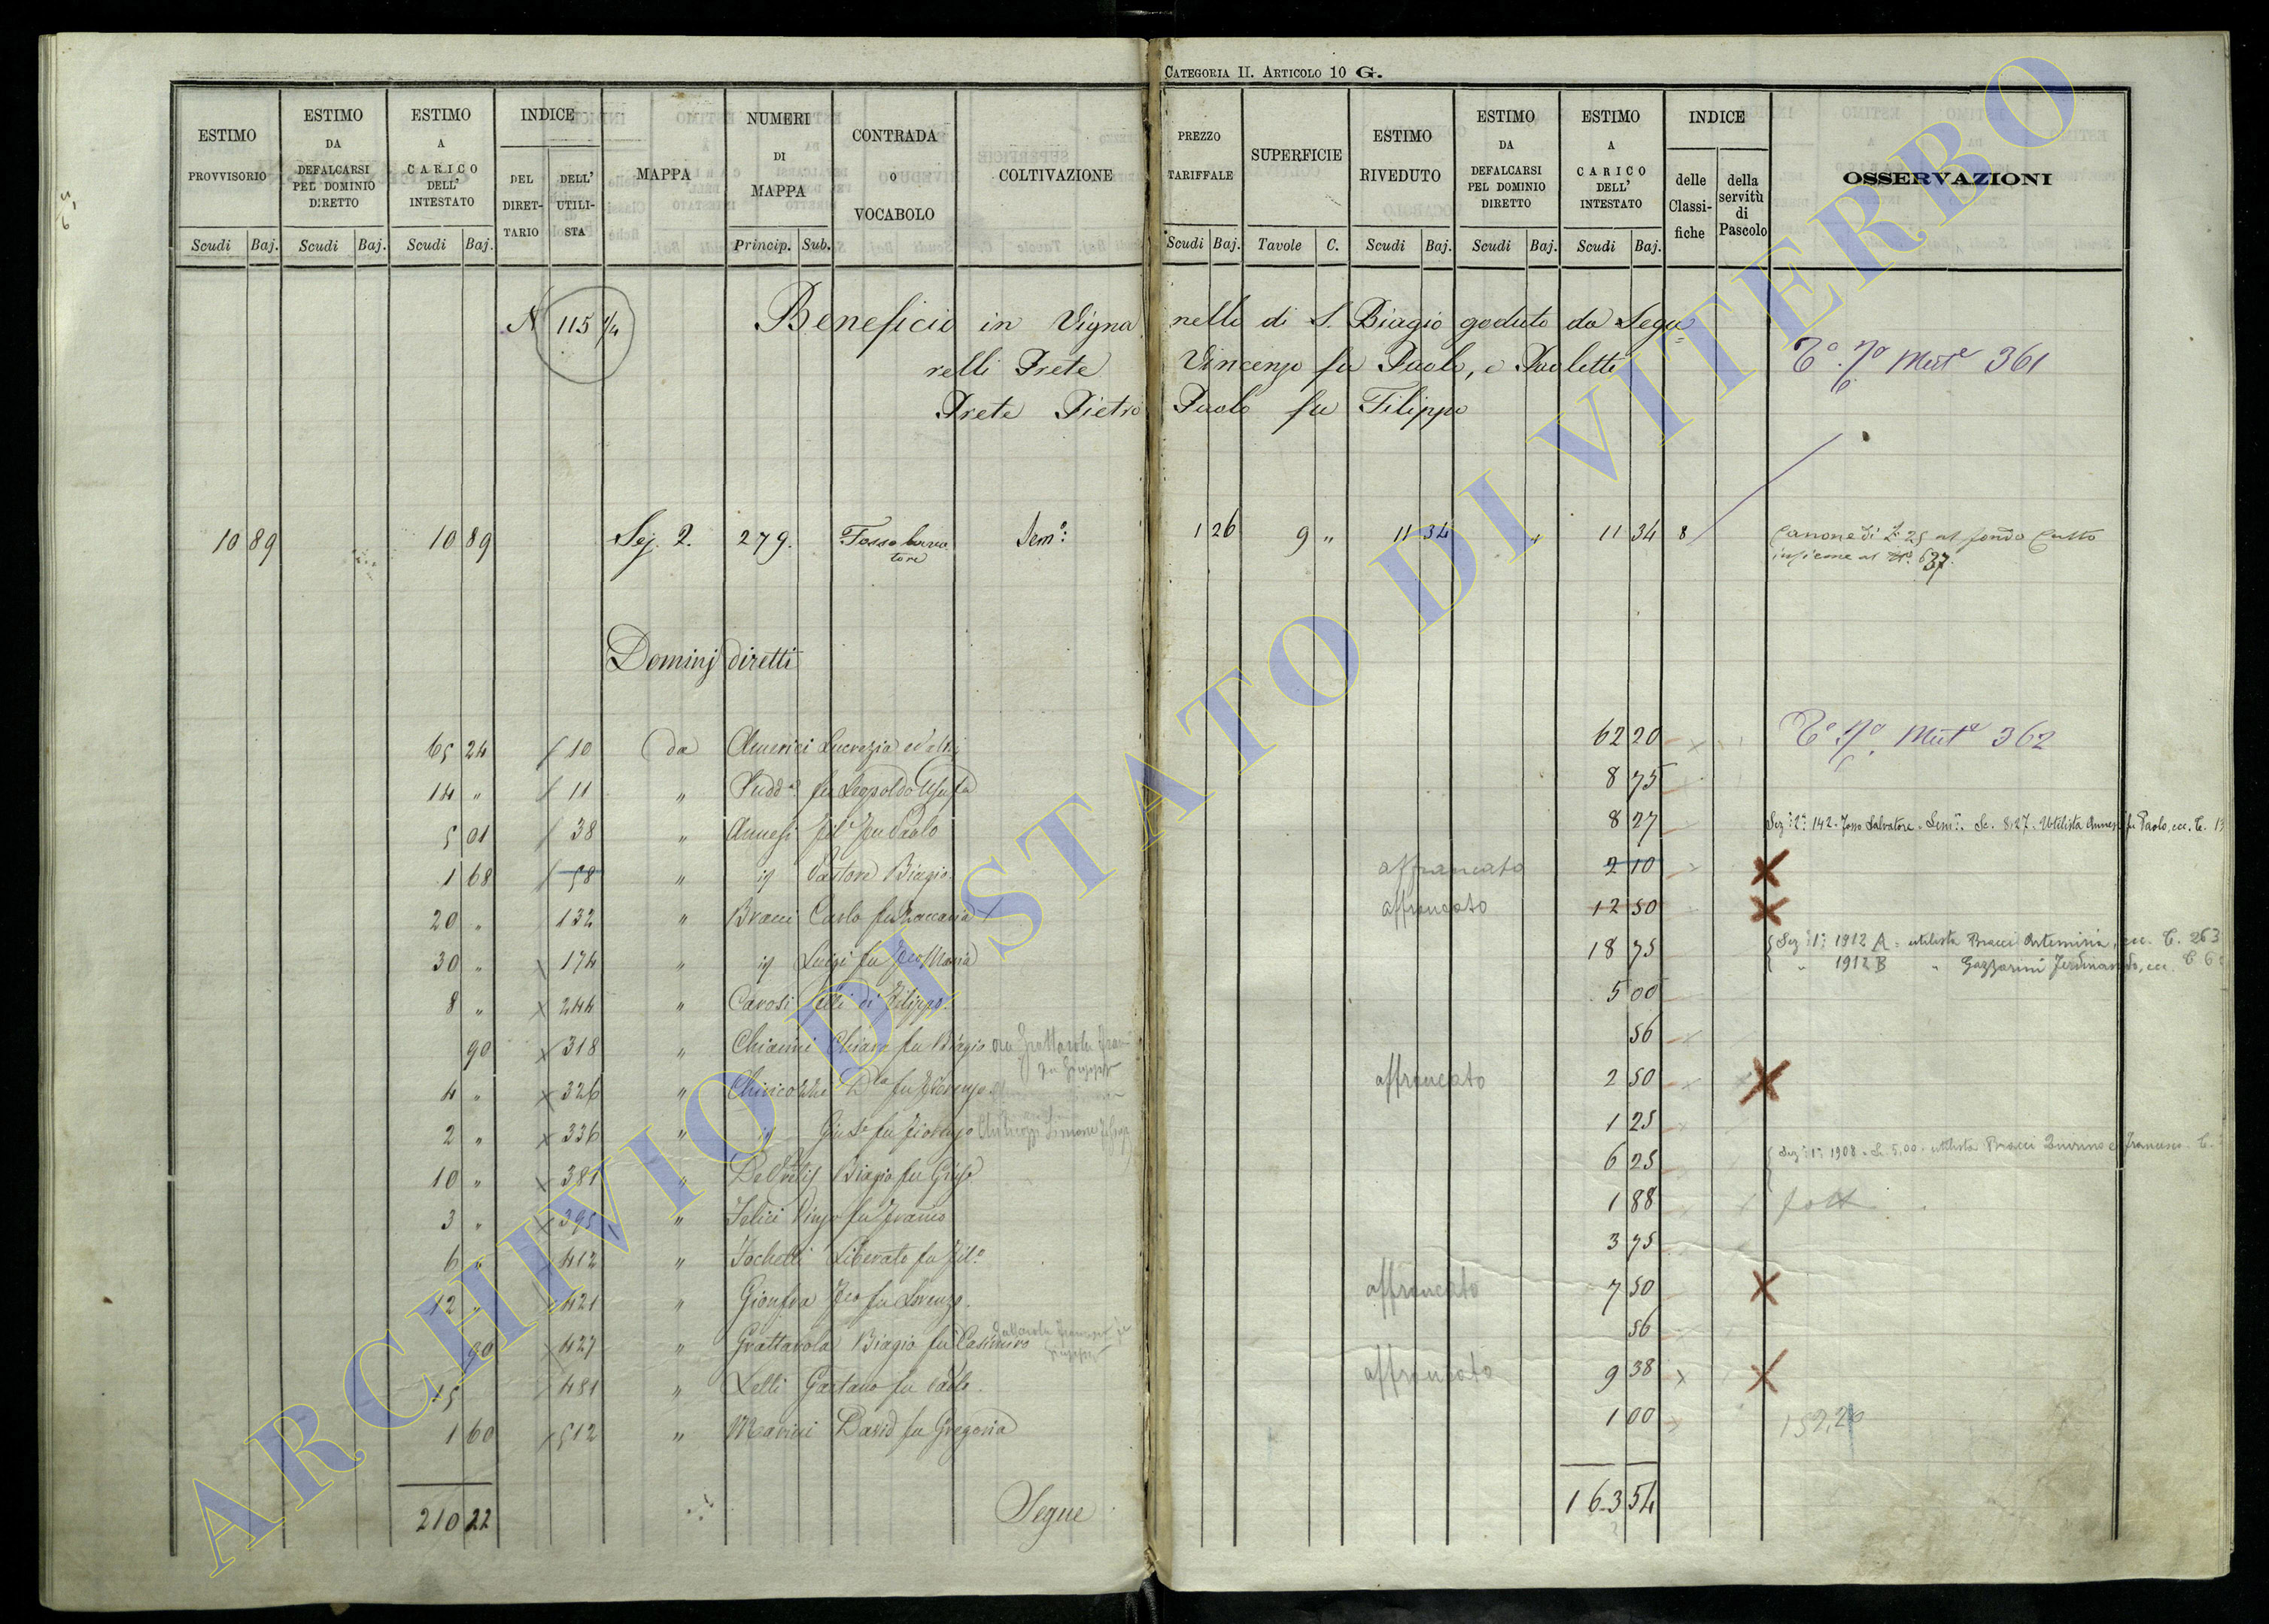 CATEGORIA II. ARTICOLO 10 G.
ESTIMO PROVVISORIO Scudi Baj. ESTIMO DA DEFALCARSI PEL DOMINIO DIRETTO Scudi Baj. ESTIMO A CARICO DELL' INTESTATO Scudi Baj. INDICE DEL DIRET-TARIO DELL' UTILI-STA MAPPA NUMERI DI MAPPA Princip. Sub. CONTRADA O VOCABOLO COLTIVAZIONE
PREZZO TARIFFALE Scudi Baj. SUPERFICIE Tavole C. ESTIMO RIVEDUTO Scudi Baj. ESTIMO DA DEFALCARSI PEL DOMINIO DIRETTO Scudi Baj. ESTIMO A CARICO DELL' INTESTATO Scudi Baj. INDICE delle Classi-fiche della servitù di Pascolo OSSERVAZIONI
N 115 1/4 Beneficio in Vigna nello di S. Biagio goduto da Segu=
relli Prete Vincenzo fu Paolo, e Paoletti
Mut.e 361
Prete Pietro Paolo fu Filippo
10 89 10 89 Sez. 2. 279. Fosso Sem.o 1 26 9 " 11 34 11 34 8 Canone di 25 al fondo
insieme al 637.
Dominj diretti
65 24 10 da Americi Lucrezia ed altri 62 20 Mut.e 362
14 " 11 " Sudd.a fu Leopoldo 8 75
5 01 38 " Annesi fu Paolo 8 27 Sez: 2a 142. Fosso Salvatore. Sem.o Sc. 8,27. Utilista Annesi fu Paolo, ecc.
1 68 58 " id Pastore Biagio affrancato 2 10
20 " 132 " Bracci Carlo fu Zaccaria affrancato 12 50
30 " 174 " id Luigi fu Maria 18 75 Sez: 1a 1912 A = utilista Bracci Artemisia, ecc. C. 263
" 1912 B " Gazzarini Ferdinando, ecc
8 " 244 " Carosi di Filippo 5 00
90 318 " Chiarini Chiara fu Biagio ora Grattarola 56
4 " 326 " Chiricozzi fu affrancato 2 50
2 " 336 " id Gius.e fu 1 25
10 " 381 " Biagio fu 6 25 Sez: 1a 1908. Sc. 5,00. utilista Bracci Francesco
3 " 395 " Felici fu 1 88
6 " 412 " Fochetti Liberato fu 3 75
12 " 421 " Gionfra fu Lorenzo affrancato 7 50
90 427 " Grattarola Biagio fu Casimiro 56
15 481 " Lelli Gaetano fu Paolo affrancato 9 38
1 60 512 " Marini David fu Gregorio 1 00 152,20
210 22 Segue 163 54
ARCHIVIO DI STATO DI VITERBO